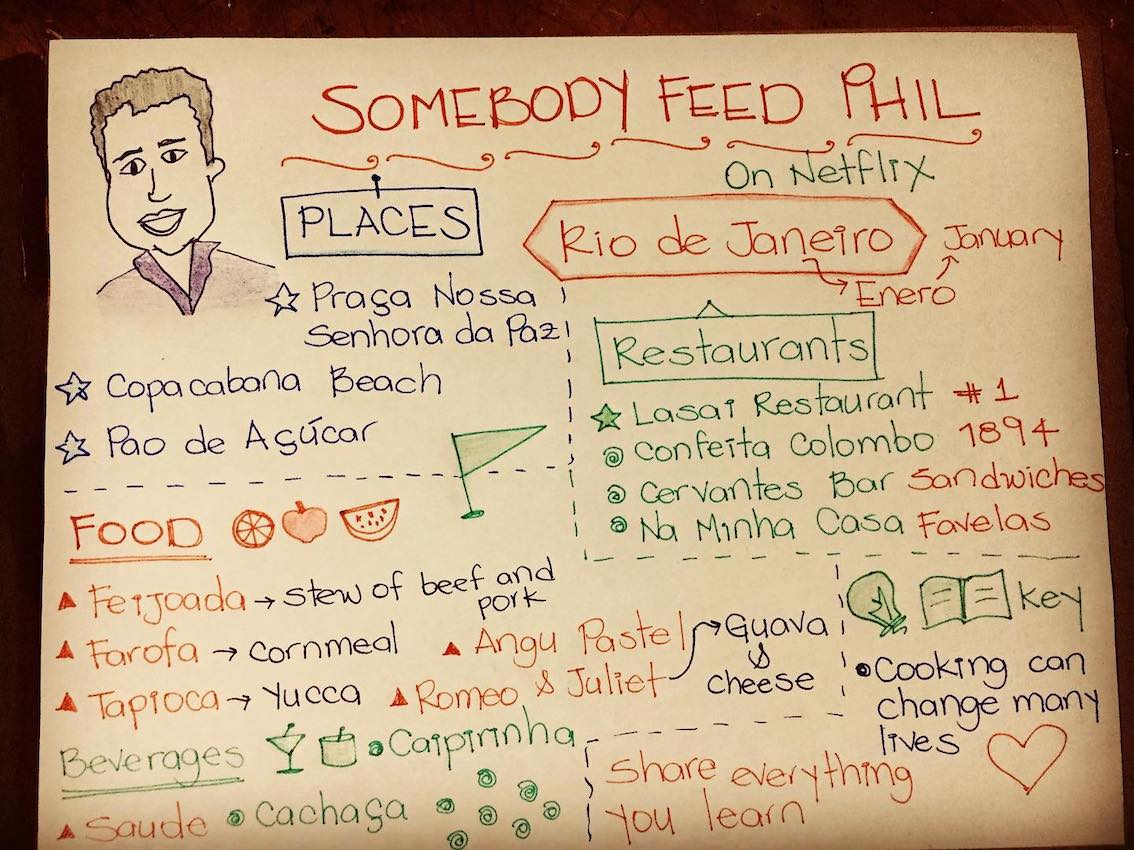 SOMEBODY FEED PHIL
On Netflix
PLACES
Praça Nossa
Senhora da Paz
Copacabana Beach
Pao de Açúcar
Rio de Janeiro
January
Enero
Restaurants
Lasai Restaurant #1
Confeita Colombo 1894
Cervantes Bar Sandwiches
Na Minha Casa Favelas
FOOD
Feijoada → stew of beef and
pork
Farofa → cornmeal
Tapioca → Yucca
Angu Pastel
Romeo & Juliet
Guava
&
cheese
Beverages
Caipirinha
Saude
Cachaça
Key
Cooking can
change many
lives
Share everything
you learn